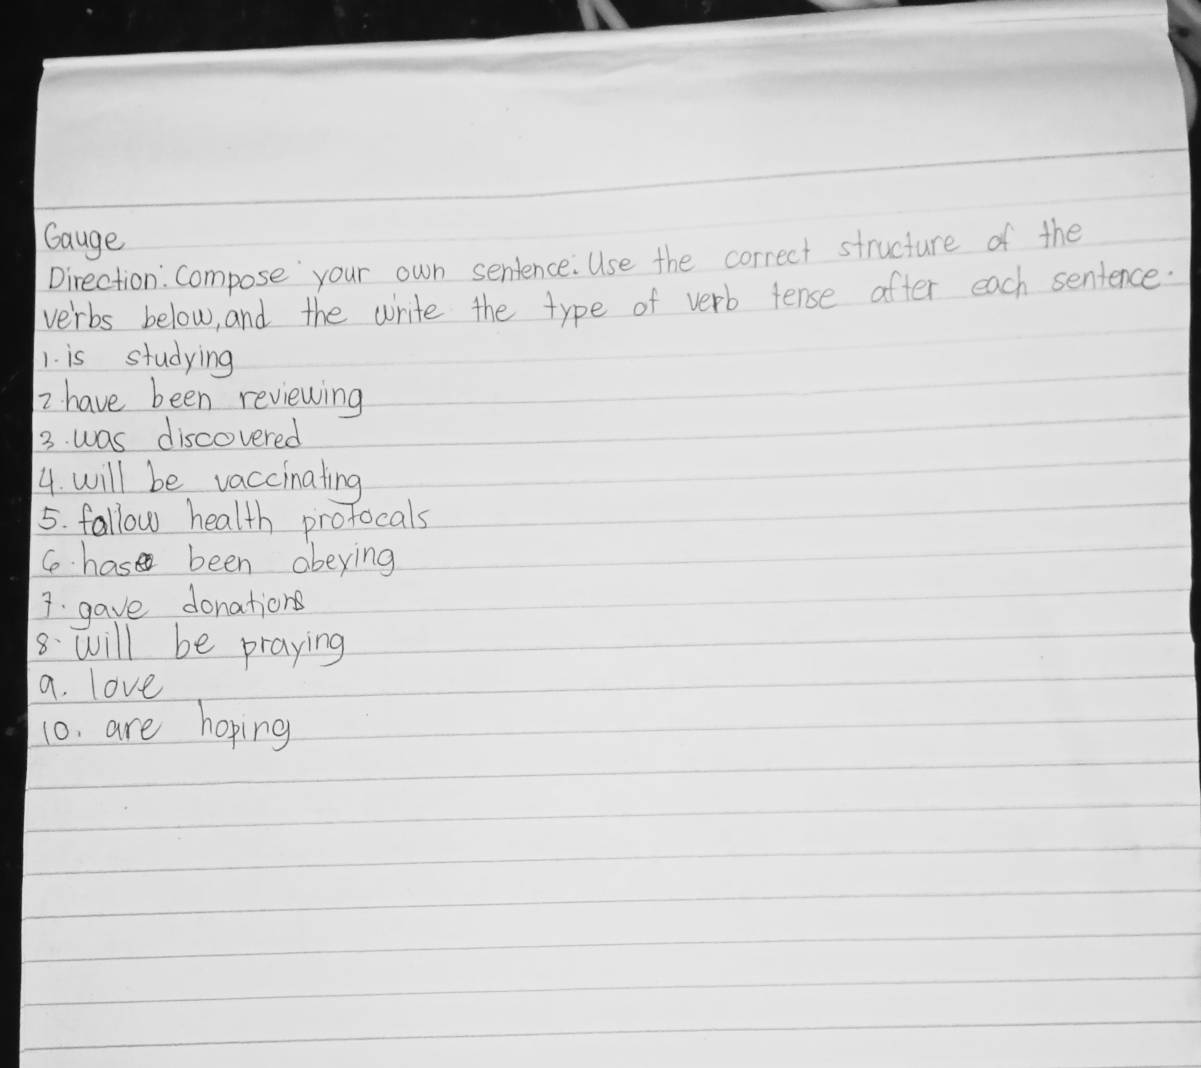 Gauge
Direction: Compose your own sentence. Use the correct structure of the
verbs below, and the write the type of verb tense after each sentence.
1. is studying
2. have been reviewing
3. was discovered
4. will be vaccinating
5. follow health protocals
6. has been obeying
7. gave donations
8. will be praying
9. love
10. are hoping